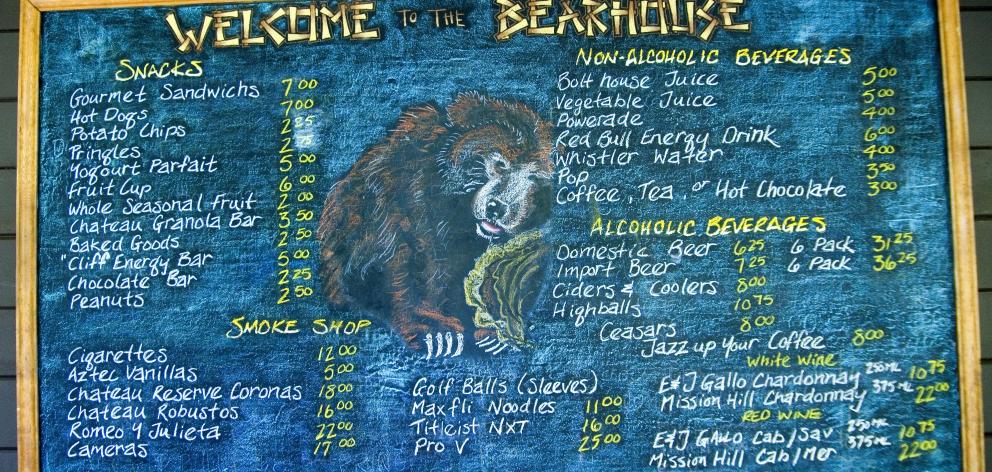 WELCOME TO THE BEARHOUSE
SNACKS
Gourmet Sandwichs 7 00
Hot Dogs 7 00
Potato Chips 2 25
Pringles 2 75
Yogourt Parfait 5 00
Fruit Cup 6 00
Whole Seasonal Fruit 2 00
Chateau Granola Bar 3 50
Baked Goods 2 50
"Cliff Energy Bar 5 00
Chocolate Bar 2 25
Peanuts 2 50
SMOKE SHOP
Cigarettes 12 00
Aztec Vanillas 5 00
Chateau Reserve Coronas 18 00
Chateau Robustos 16 00
Romeo Y Julieta 22 00
Cameras 17 00
Golf Balls (Sleeves)
Maxfli Noodles 11 00
Titleist NXT 16 00
Pro V 25 00
NON-ALCOHOLIC BEVERAGES
Bolt house Juice 5 00
Vegetable Juice 5 00
Powerade 4 00
Red Bull Energy Drink 6 00
Whistler Water 4 00
Pop 3 50
Coffee, Tea, or Hot Chocolate 3 00
ALCOHOLIC BEVERAGES
Domestic Beer 6 25 6 Pack 31 25
Import Beer 7 25 6 Pack 36 25
Ciders & Coolers 8 00
Highballs 10 75
Ceasars 8 00
Jazz up your Coffee 8 00
White Wine
E&J Gallo Chardonnay 250ML 10 75
Mission Hill Chardonnay 375ML 22 00
RED WINE
E&J Gallo Cab/Sav 250ML 10 75
Mission Hill Cab/Mer 375ML 22 00